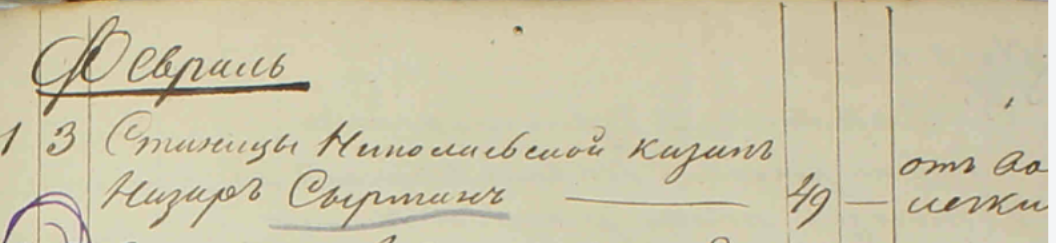 Февраль
1 3 Станицы Николаевской казакъ
Назаръ Сыртанъ — 49 — отъ